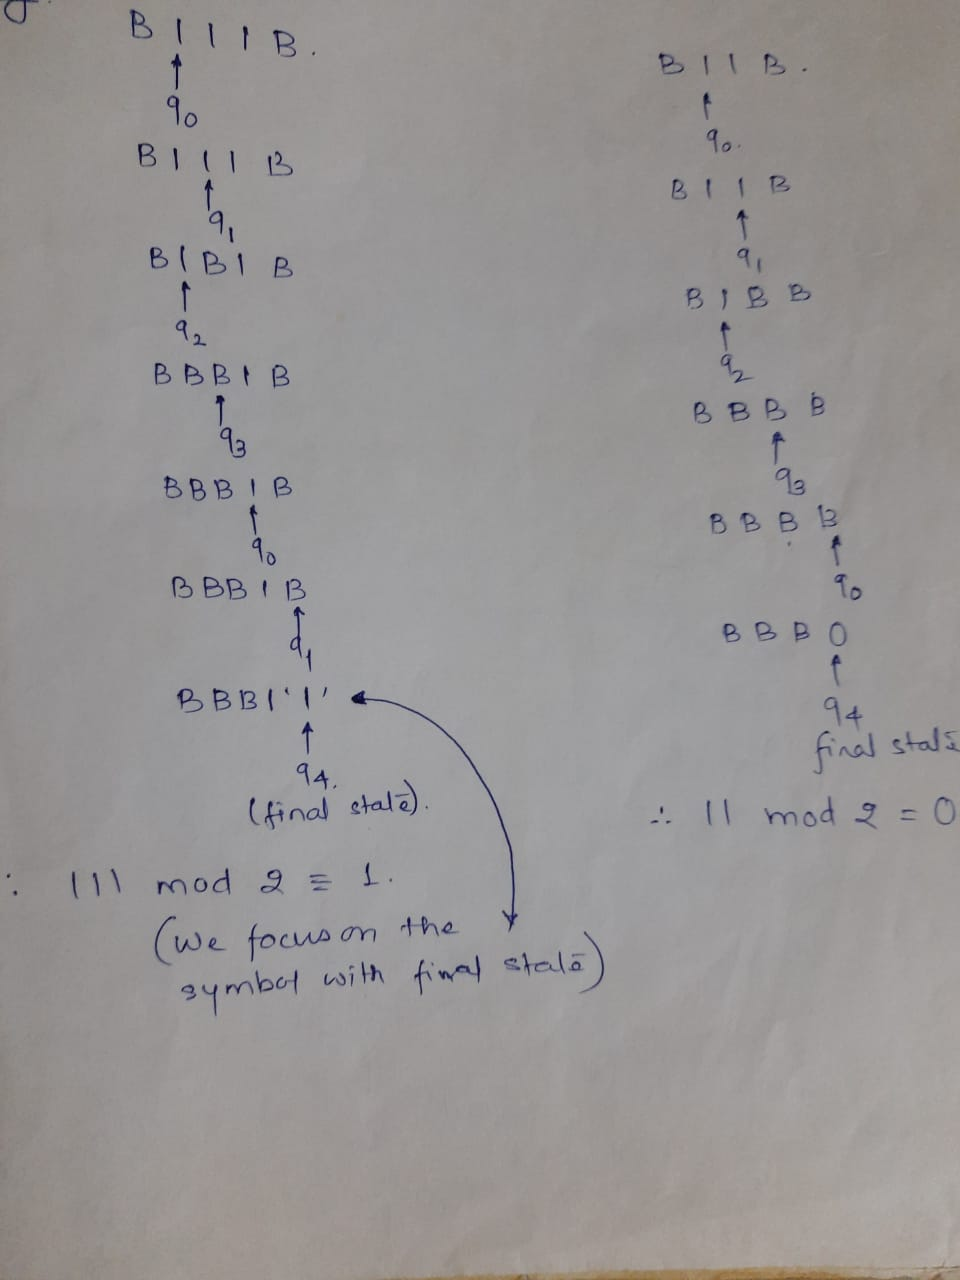 B 1 1 1 B.
↑
q0
B 1 1 1 B
↑
q1
B 1 B 1 B
↑
q2
B B B 1 B
↑
q3
B B B 1 B
↑
q0
B B B 1 B
↑
q1
B B B 1 '1'
↑
q4.
(final state).
∴ 111 mod 2 ≡ 1.
(We focus on the
symbol with final state)
B 1 1 B.
↑
q0.
B 1 1 B
↑
q1
B 1 B B
↑
q2
B B B B
↑
q3
B B B B
↑
q0
B B B 0
↑
q4
final state
∴ 11 mod 2 = 0